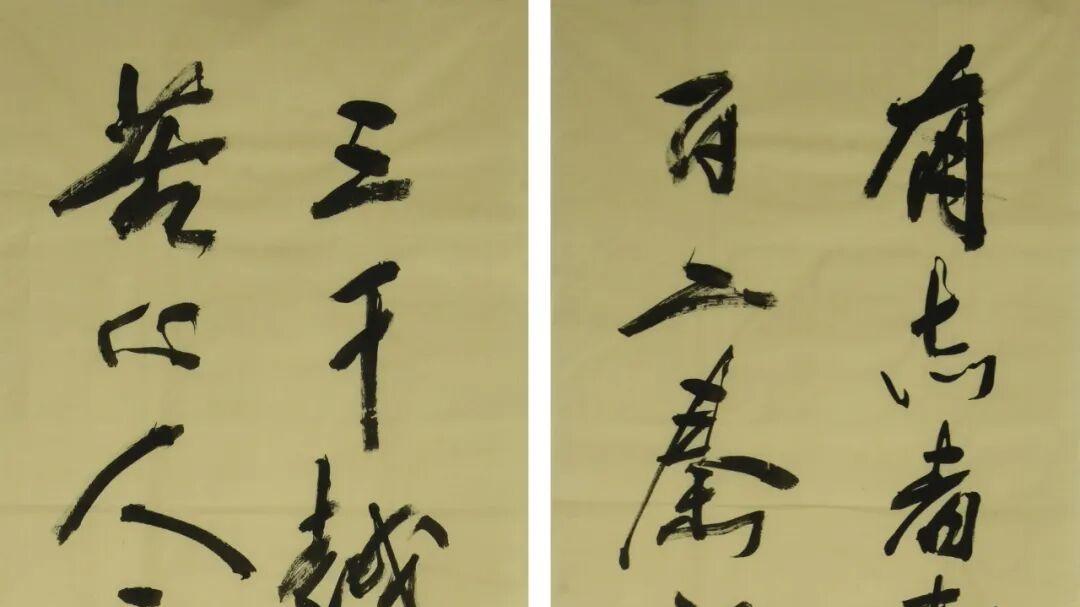 有志者
百二秦
苦心人
三千越